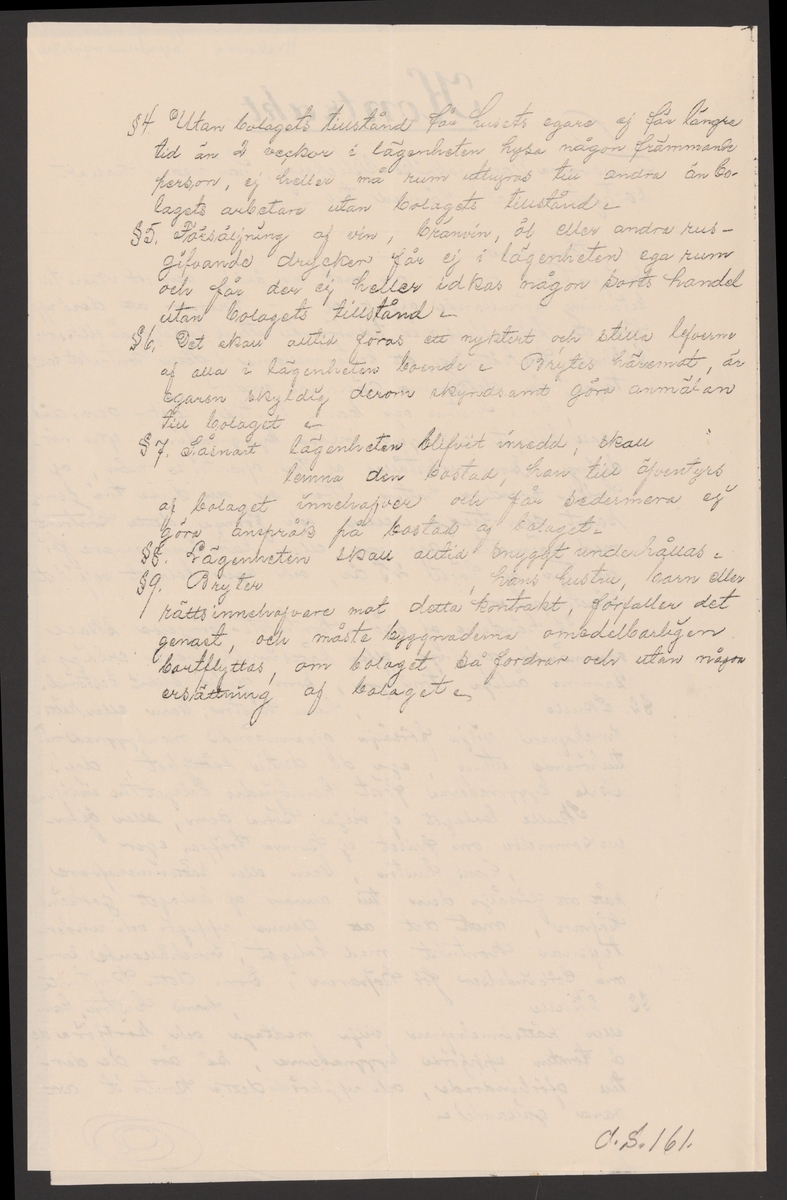 §4. Utan bolagets tillstånd får husets egare ej för längre
tid än 2 veckor i lägenheten hysa någon främmande
person, ej heller må rum uthyras till andra än bo-
lagets arbetare utan bolagets tillstånd.
§5. Försäljning af vin, bränvin, öl eller andra rus-
gifvande drycker får ej i lägenheten ega rum
och får der ej heller idkas någon sorts handel
utan bolagets tillstånd.
§6. Det skall alltid föras ett nyktert och stilla lefverne
af alla i lägenheten boende. Brytes häremot, är
egaren skyldig derom skyndsamt göra anmälan
till bolaget.
§7. Såsnart lägenheten blifvit inredd, skall
lemna den bostad, han till äfventyrs
af bolaget innehafver och får sedermera ej
göra anspråk på bostad af bolaget.
§8. Lägenheten skall alltid snyggt underhållas.
§9. Bryter , hans hustru, barn eller
rättsinnehafvare mot detta kontrakt, förfaller det
genast, och måste byggnaderna omedelbarligen
bortflyttas, om bolaget så fordrar och utan någon
ersättning af bolaget.
d.S. 161.